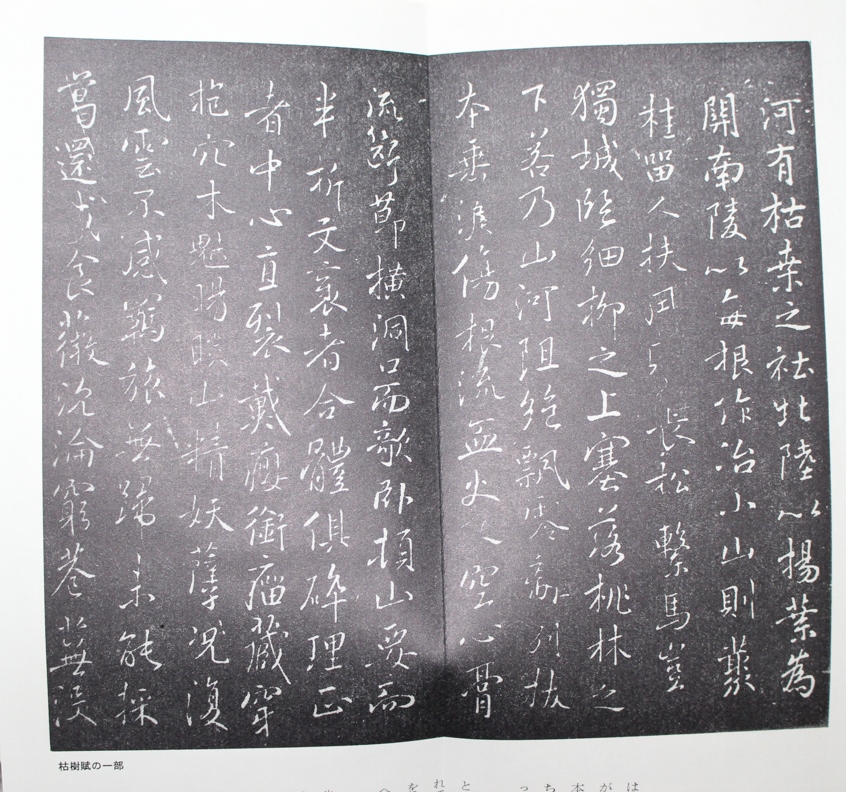 河有枯桒之社北陸以楊葉為
關南陵以每根作冶小山則叢
桂留人扶長松繫馬豈
獨城臨細柳之上塞落桃林之
下若乃山河阻絕飄零離別拔
本垂淚傷根流血火入空心膏
流斷節橫洞口而欹臥頓山腰而
半折文衺者合體俱碎理正
者中心直裂戴癭銜瘤藏穿
抱穴木魅睗睒山精妖孽況復
風雲不感羈旅無歸未能採
葛還成食薇沉淪窮巷蕪沒
枯樹賦の一部